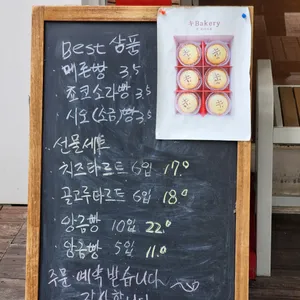 Best 상품
· 메론빵 3.5
· 쵸코소라빵 3.5
· 시오(소금)빵 3.5
선물세트
· 치즈타르트 6입 17.0
· 골고루타르트 6입 18.0
· 앙금빵 10입 22.0
· 앙금빵 5입 11.0
주문 예약 받습니다
감사합니다
Bakery